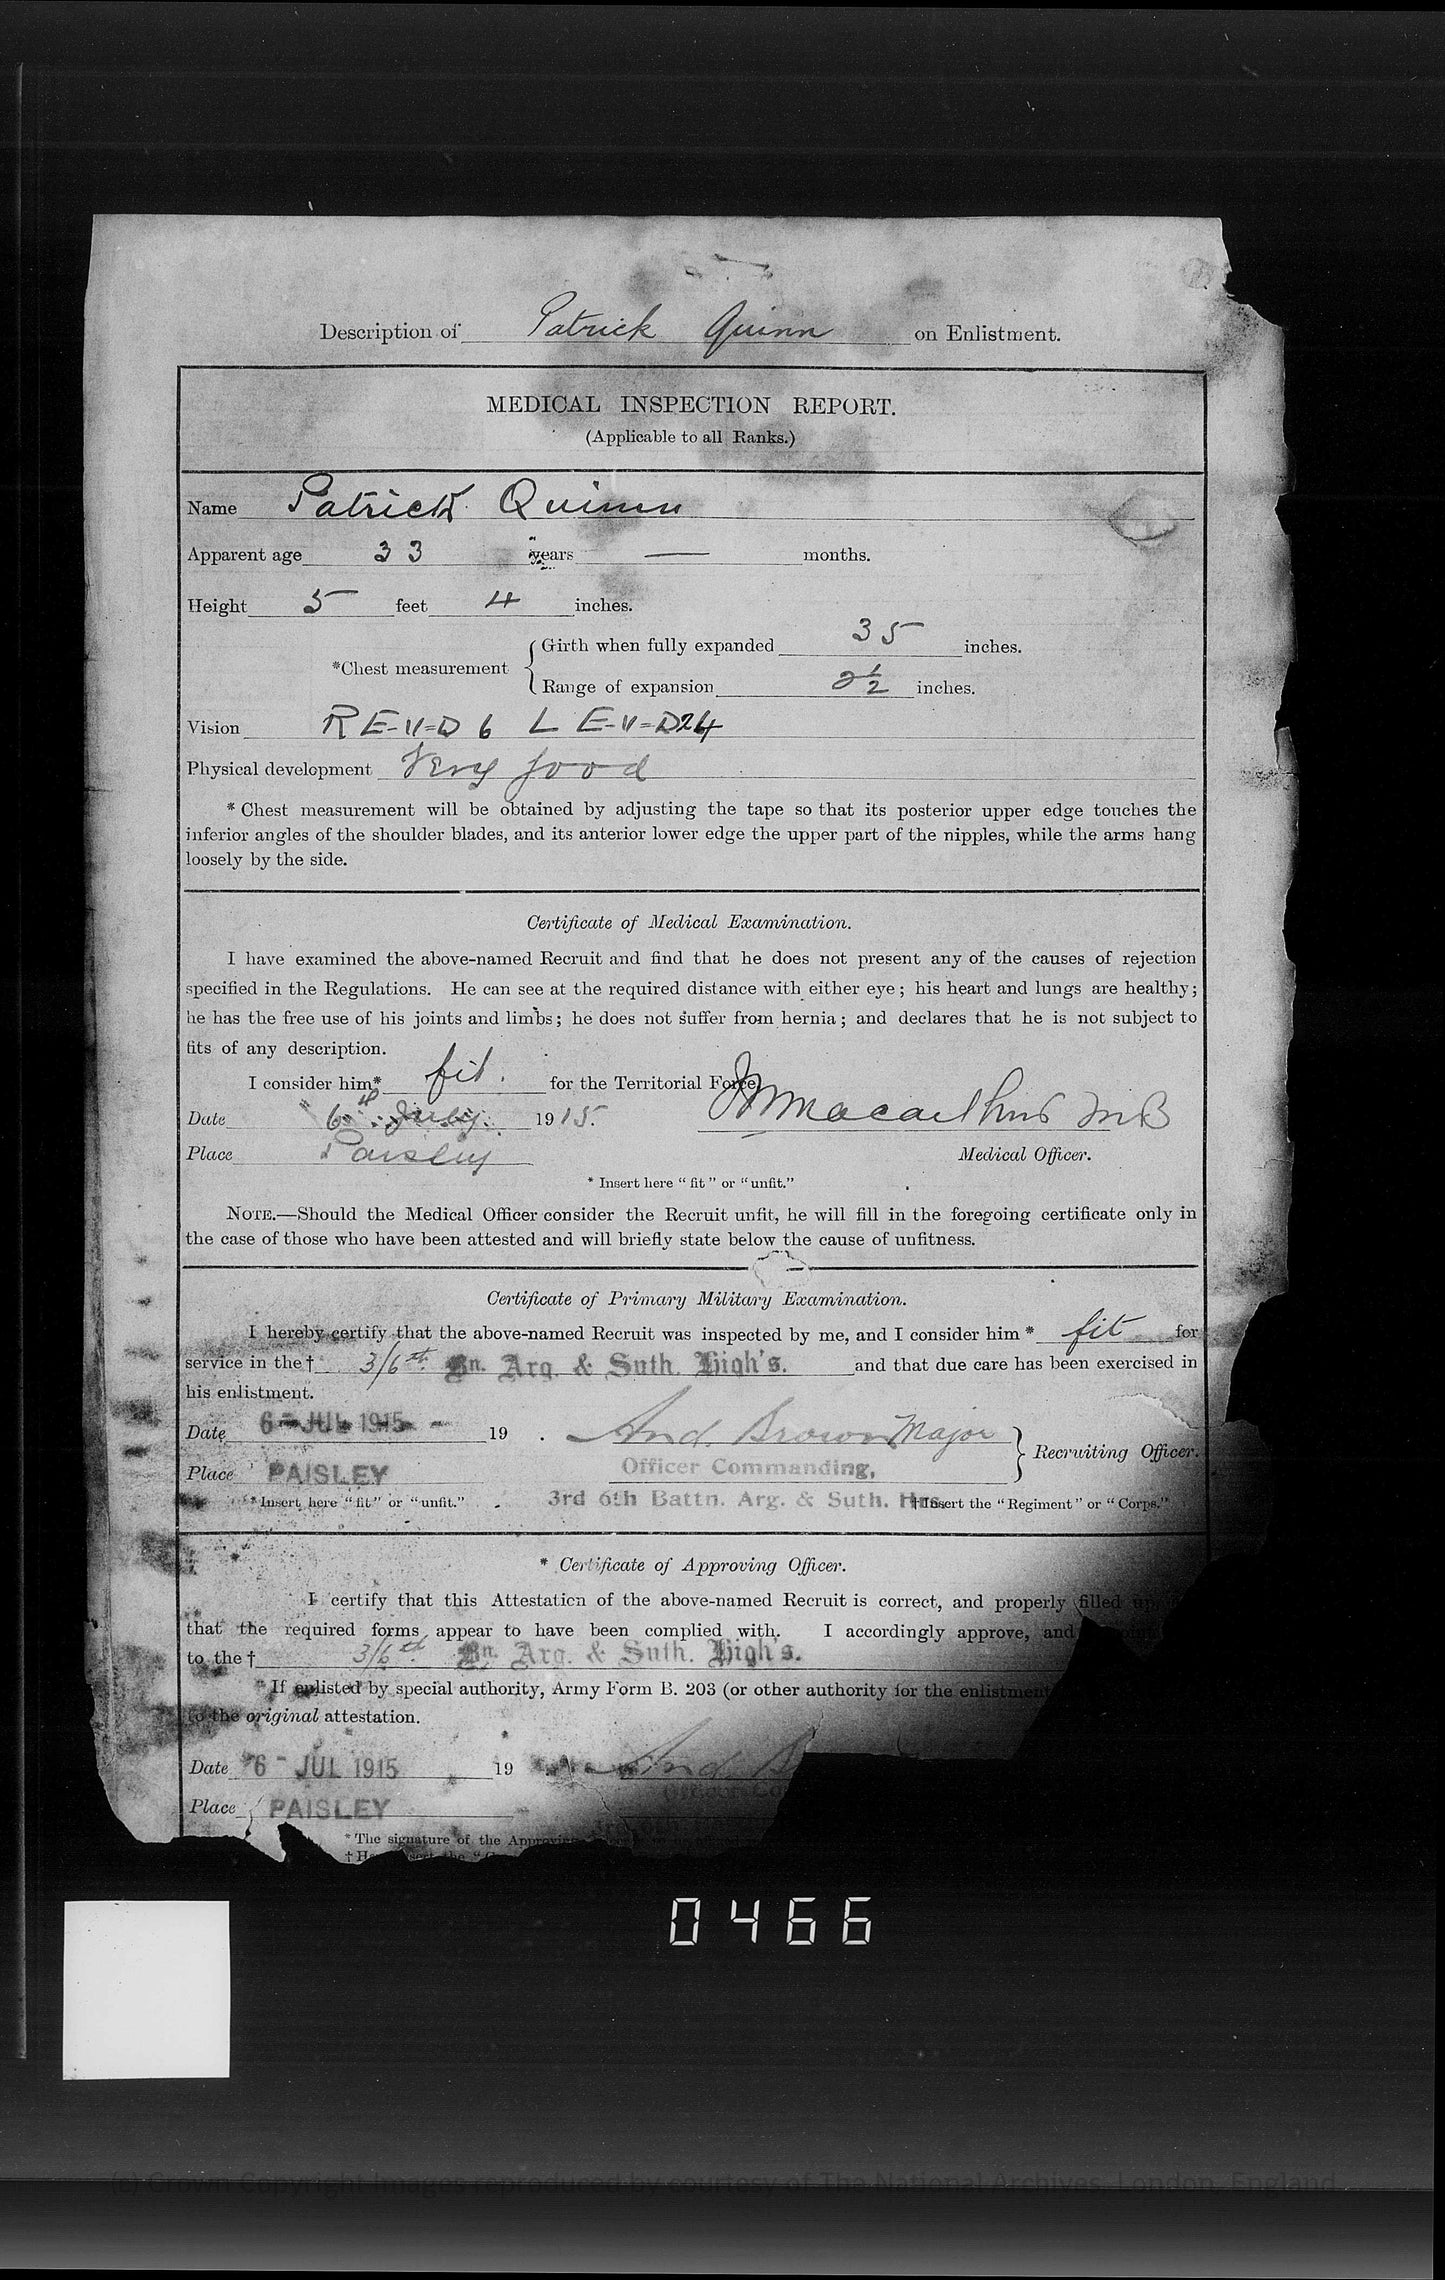 Description of Patrick Quinn on Enlistment.
MEDICAL INSPECTION REPORT.
(Applicable to all Ranks.)
Name Patrick Quinn
Apparent age 33 years — months.
Height 5 feet 4 inches.
*Chest measurement { Girth when fully expanded 35 inches.
Range of expansion 2½ inches.
Vision R E-V=D 6 L E-V=D24
Physical development Very good
* Chest measurement will be obtained by adjusting the tape so that its posterior upper edge touches the
inferior angles of the shoulder blades, and its anterior lower edge the upper part of the nipples, while the arms hang
loosely by the side.
Certificate of Medical Examination.
I have examined the above-named Recruit and find that he does not present any of the causes of rejection
specified in the Regulations. He can see at the required distance with either eye; his heart and lungs are healthy;
he has the free use of his joints and limbs; he does not suffer from hernia; and declares that he is not subject to
fits of any description.
I consider him* fit. for the Territorial Force.
Date 6th July 1915. Macarthur MB
Place Paisley Medical Officer.
* Insert here "fit" or "unfit."
NOTE.—Should the Medical Officer consider the Recruit unfit, he will fill in the foregoing certificate only in
the case of those who have been attested and will briefly state below the cause of unfitness.
Certificate of Primary Military Examination.
I hereby certify that the above-named Recruit was inspected by me, and I consider him * fit for
service in the † 3/6th Bn. Arg. & Suth. High's. and that due care has been exercised in
his enlistment.
Date 6 - JUL 1915 19 . And. Brown Major } Recruiting Officer.
Place PAISLEY Officer Commanding,
* Insert here "fit" or "unfit." 3rd 6th Battn. Arg. & Suth. Hrs. † Insert the "Regiment" or "Corps."
* Certificate of Approving Officer.
I certify that this Attestation of the above-named Recruit is correct, and properly filled up,
that the required forms appear to have been complied with. I accordingly approve, and
to the † 3/6th Bn. Arg. & Suth. High's.
* If enlisted by special authority, Army Form B. 203 (or other authority for the enlistment
to the original attestation.
Date 6 - JUL 1915 19 And. B
Place PAISLEY
* The signature of the Approving
0466
(c) Crown Copyright Images reproduced by courtesy of The National Archives, London, England.